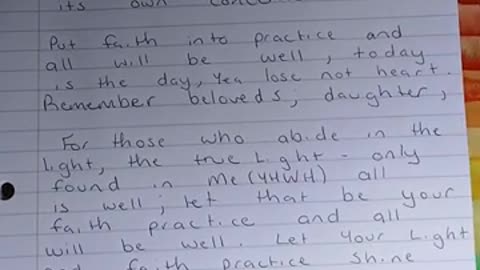 its own conce
Put faith into practice and
all will be well, today
is the day, Yea lose not heart.
Remember beloveds; daughter,
For those who abide in the
Light, the true Light - only
found in Me (YHWH) all
is well; let that be your
faith practice and all
will be well. Let Your Light
and faith practice shine